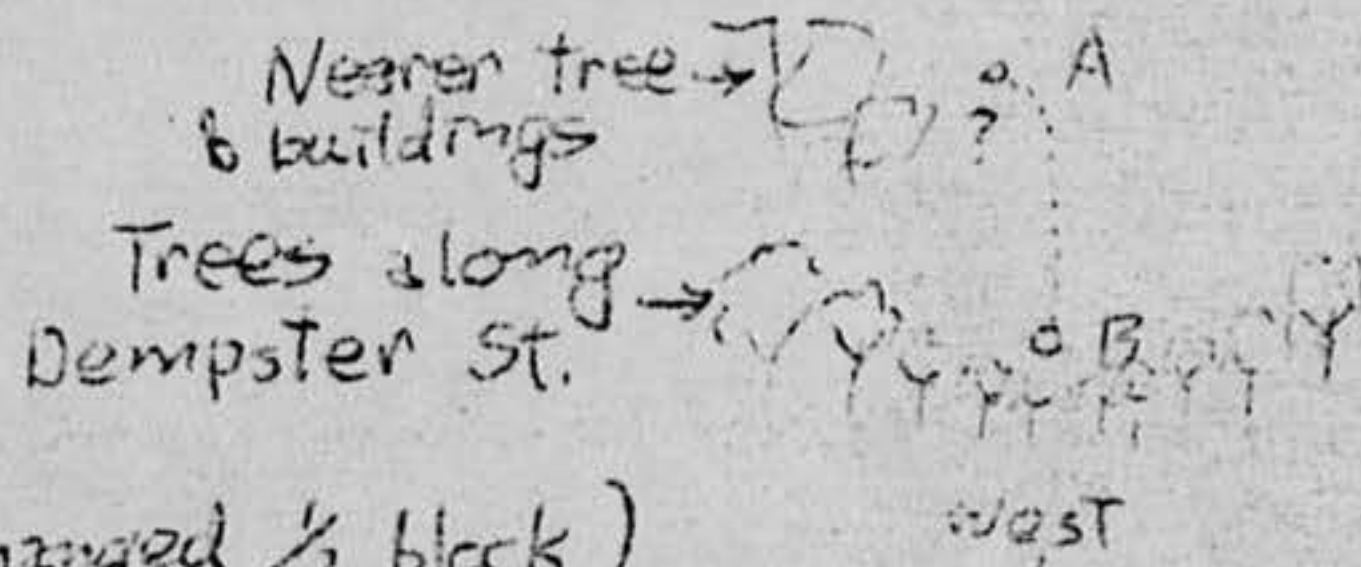 Nearer tree A
& buildings ?
Trees along
Dempster St. B
½ block) west